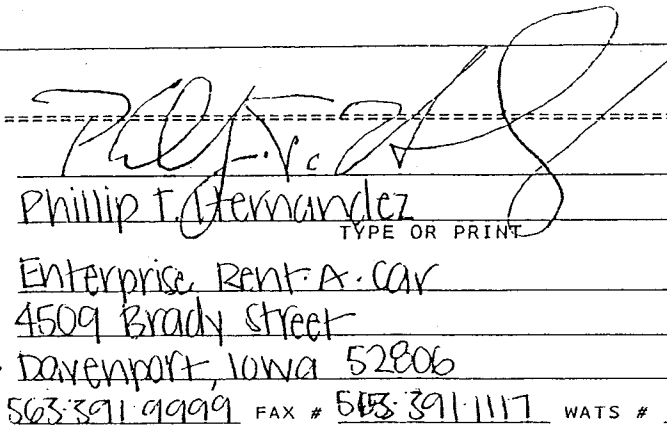 Phillip T. Hernandez
TYPE OR PRINT
Enterprise Rent-A-Car
4509 Brady Street
Davenport, Iowa 52806
563-391-9999 FAX # 563-391-1117 WATS #